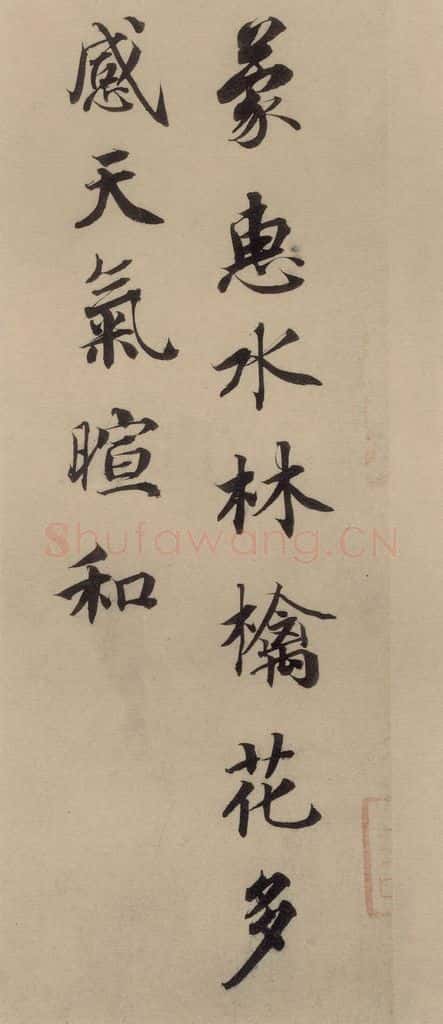 蒙惠水林檎花多
感天氣暄和
Shufawang.CN